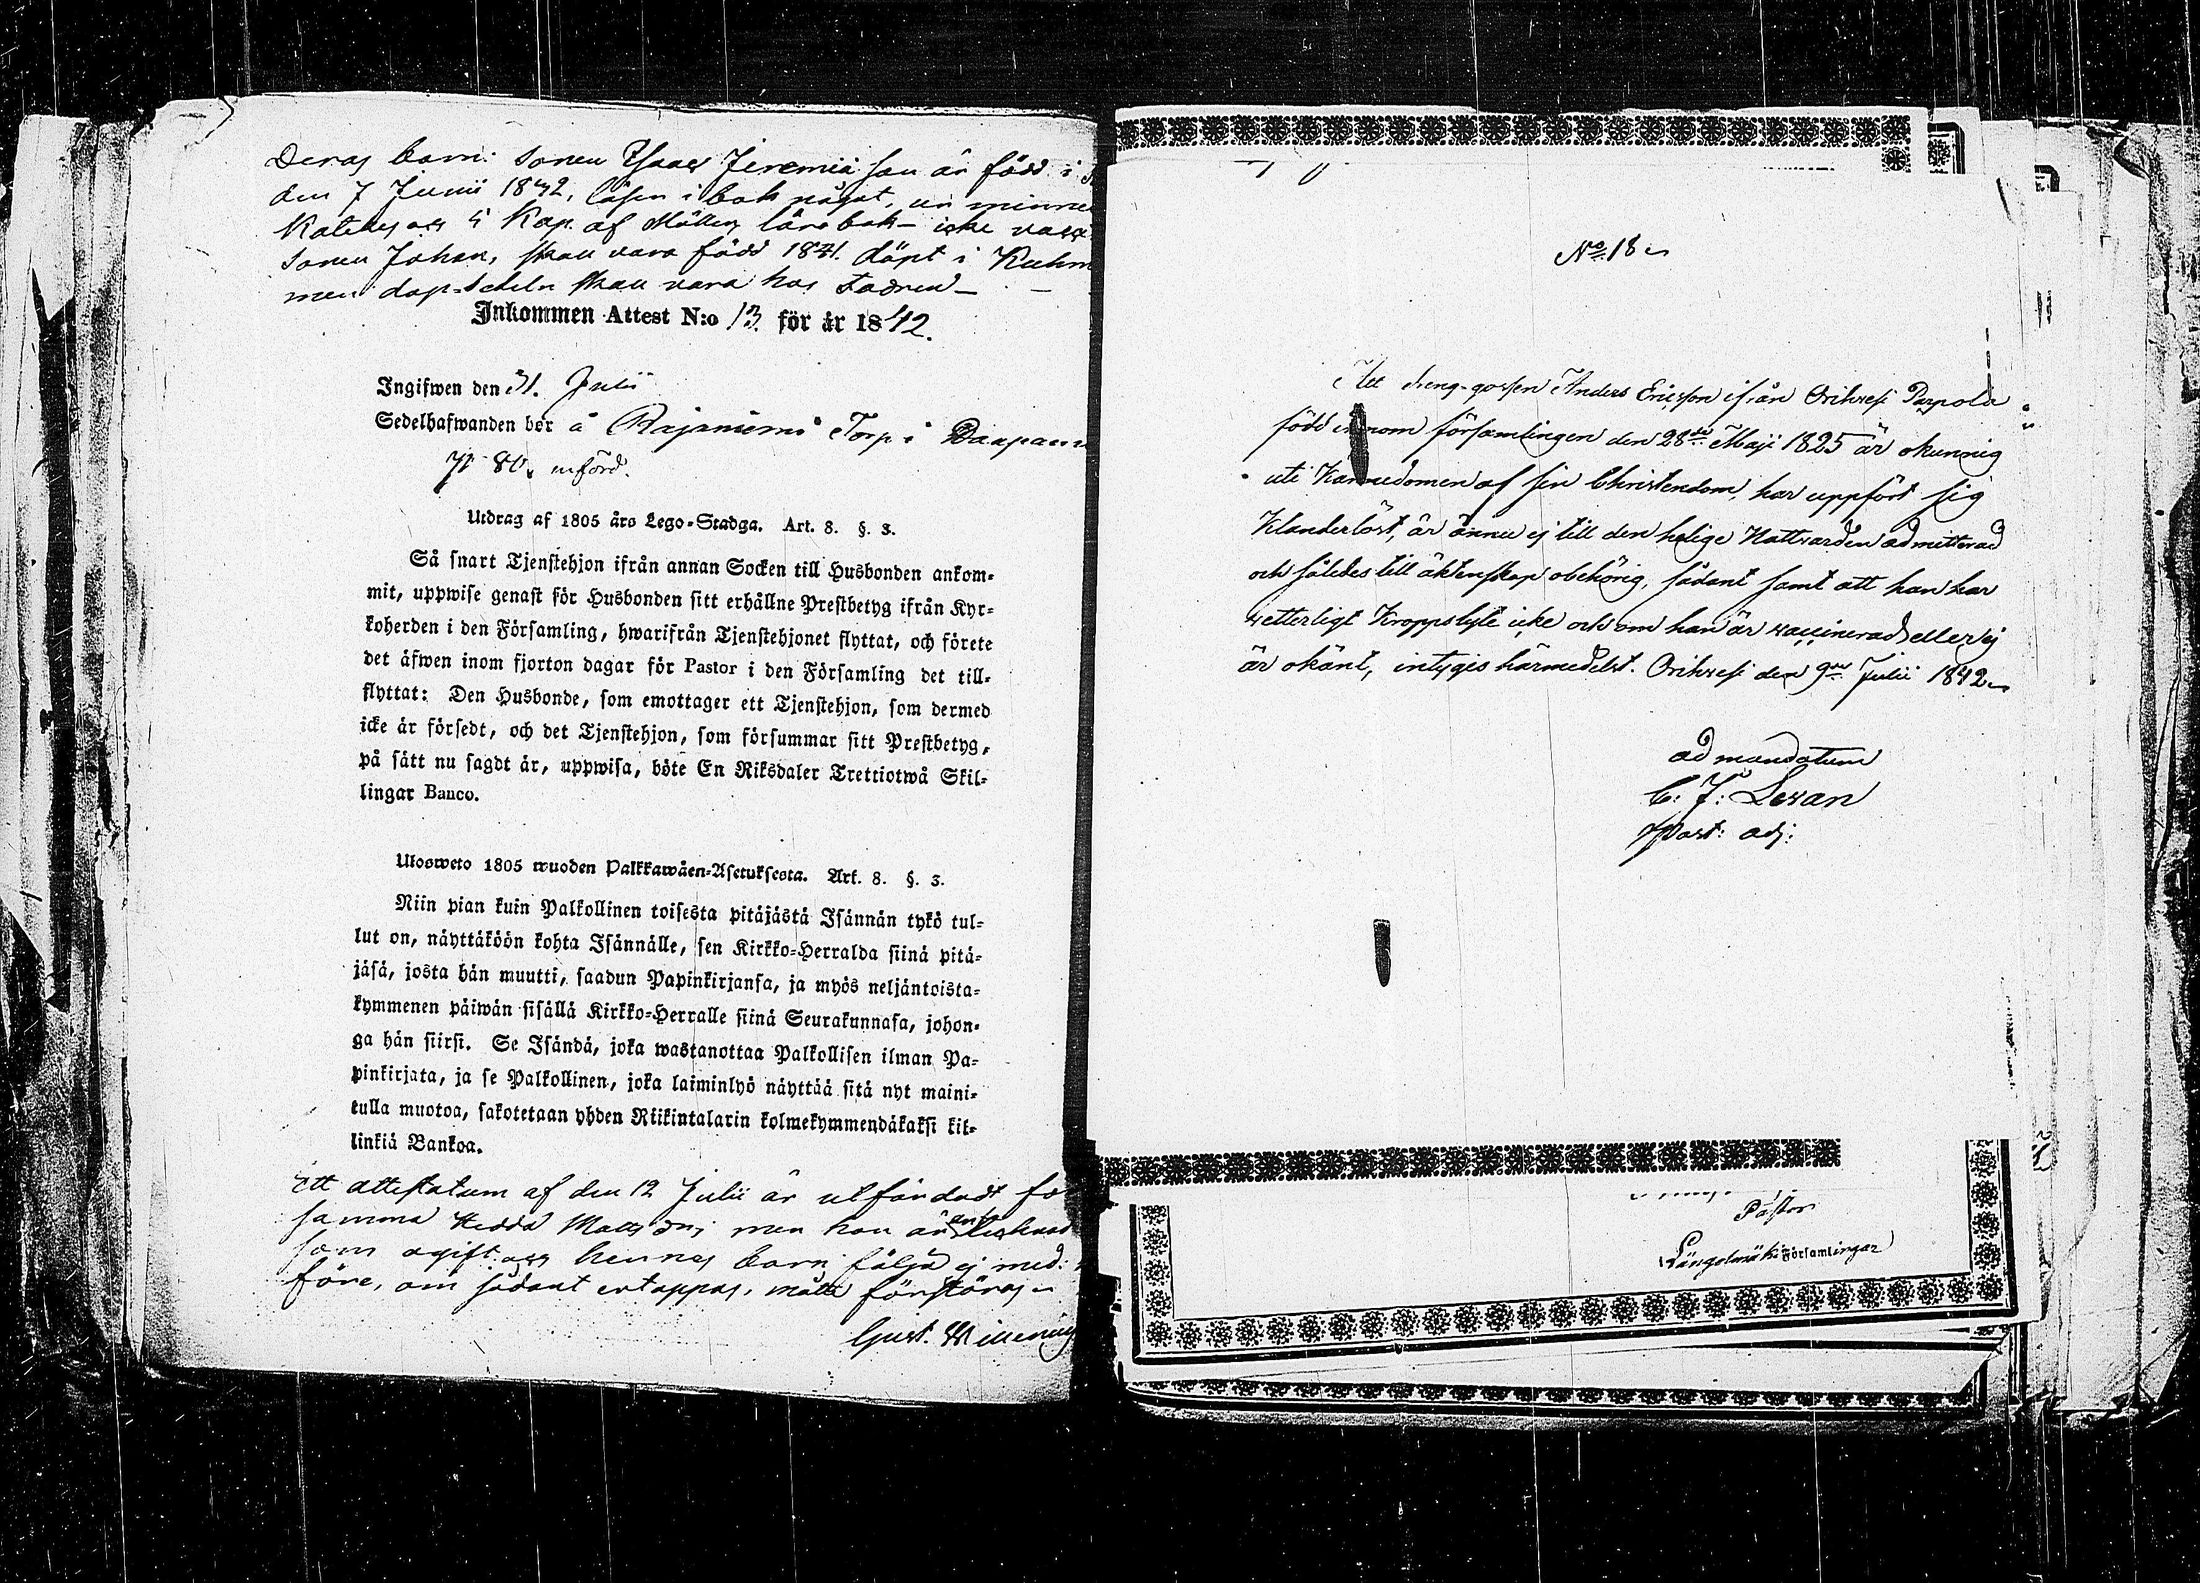 Deras barn: Sonen Isaac Jeremiæ son är född i
den 7 Junii 1832, läsen i bok något, ur minne
Kateches och 5 Kap. af Möllers lärobok – icke vacc
Sonen Johan, skall vara född 1841. döpt i Kuhm
men dop-sedeln skall vara hos Fadren –
Inkommen Attest N:o 13. för år 1842.
Ingifwen den 31. Julii
Sedelhafwanden bor å Rajaniemi Torp i
p 80. införd.
Utdrag af 1805 års Lego-Stadga. Art. 8. §. 3.
Så snart Tjenstehjon ifrån annan Socken till Husbonden ankom-
mit, uppwise genast för Husbonden sitt erhållne Prestbetyg ifrån Kyr-
koherden i den Församling, hwarifrån Tjenstehjonet flyttat, och förete
det äfwen inom fjorton dagar för Pastor i den Församling det till-
flyttat: Den Husbonde, som emottager ett Tjenstehjon, som dermed
icke är försedt, och det Tjenstehjon, som försummar sitt Prestbetyg,
på sätt nu sagdt är, uppwisa, böte En Riksdaler Trettiotwå Skil-
lingar Banco.
Ulosweto 1805 wuoden Palkkawäen-Asetuksesta. Art. 8. §. 3.
Niin pian kuin Palkollinen toisesta pitäjästä Isännän tykö tul-
lut on, näyttäköön kohta Isännälle, sen Kirkko-Herralda siinä pitä-
jäsä, josta hän muutti, saadun Papinkirjansa, ja myös neljäntoista-
kymmenen päiwän sisällä Kirkko-Herralle siinä Seurakunnasa, johon-
ga hän siirsi. Se Isändä, joka wastanottaa Palkollisen ilman Pa-
pinkirjata, ja se Palkollinen, joka laiminlyö näyttää sitä nyt maini-
tulla muotoa, sakotetaan yhden Riikintalarin kolmekymmendäkaksi kil-
linkiä Bankoa.
Ett attestatum af den 12 Julii är utfärdadt för
samma Hedda Matts dr, men hon är
som ogift och hennes barn följa ej med:
före, om sådant ertappas, måtte förstöras –
Gust.
No. 18
Att dreng-gossen Anders Ericsson ifrån Orihvesi Parpola
född innom församlingen den 28de Maji 1825 är okunnig
uti Kännedomen af sin Christendom, har uppfört sig
Klanderlöst, är ännu ej till den helige Nattvarden admitterad
och således till äktenskap obehörig, sådant samt att han har
vetterligt Kroppslyte icke och om han är vaccinerad eller ej
är okänt, intygis härmedelst. Orihvesi den 9de Julii 1842.
ad mandatum
C: J: Levan
Past: adj:
Pastor
Längelmäki Församlingar